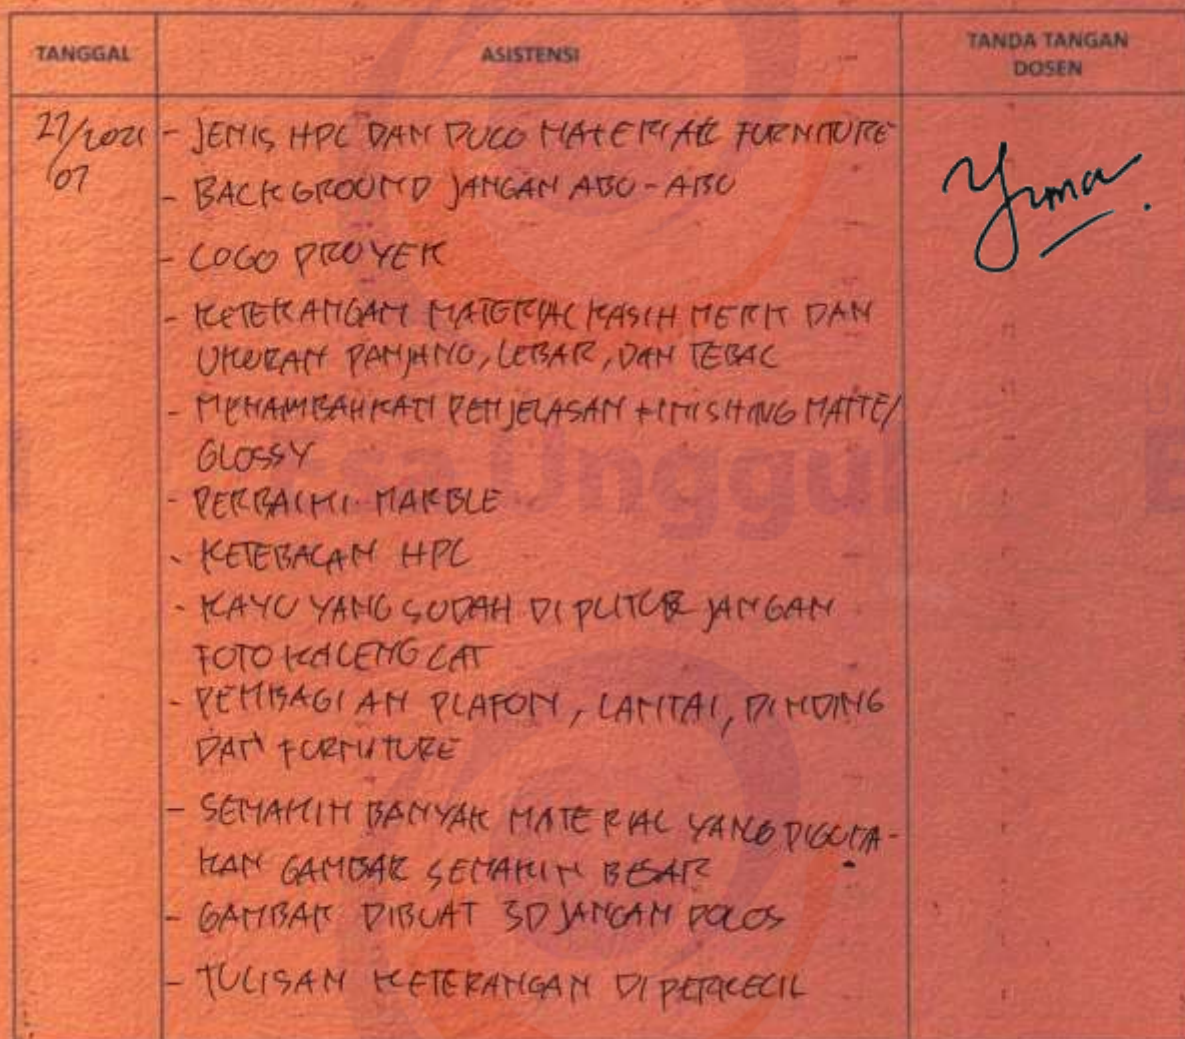 TANGGAL
ASISTENSI
TANDA TANGAN
DOSEN
27/2021
07
- JENIS HPL DAN DUCO MATERIAL FURNITURE
- BACKGROUND JANGAN ABU-ABU
- LOGO PROYEK
- KETERANGAN MATERIAL KASIH MERK DAN
UKURAN PANJANG, LEBAR, DAN TEBAL
- MENAMBAHKAN PENJELASAN FINISHING MATTE/
GLOSSY
- PERBAIKI MARBLE
- KETEBALAN HPL
- KAYU YANG SUDAH DI PLITUR JANGAN
FOTO KALENG CAT
- PEMBAGIAN PLAFON, LANTAI, DINDING
DAN FURNITURE
- SEMAKIN BANYAK MATERIAL YANG DIGUNA-
KAN GAMBAR SEMAKIN BESAR
- GAMBAR DIBUAT 3D JANGAN POLOS
- TULISAN KETERANGAN DIPERKECIL
Yuma
Esa Unggul